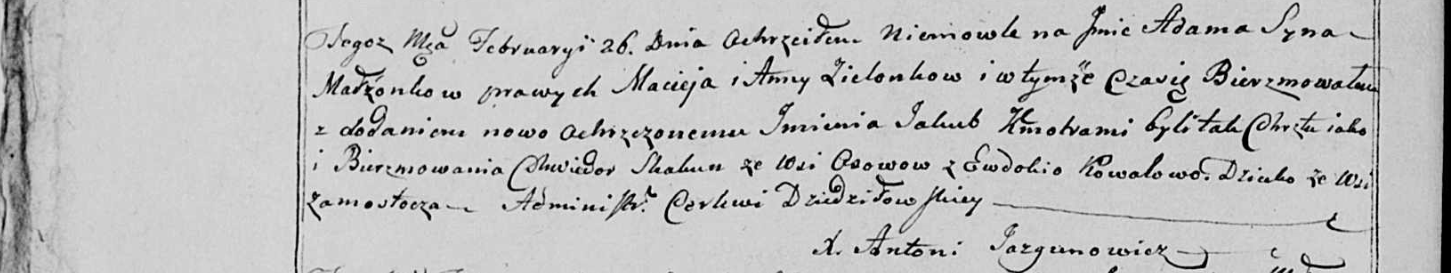 Tegoż Mca Februaryi 26. Dnia Ochrzciłem Niemowle na Jmie Adama Syna
Małżonkow prawych Macieja i Anny Zielonkow i w tymże Czasie Bierzmowałem
z dodaniem nowo Ochrzczonemu Jmienia Jakub Kmotrami byli tak Chrztu iako
i Bierzmowania Chwiedor Skakun ze Wsi Osowow z Ewdokio Kowalowo. Dziecko ze Wsi
Zamostocza Administr. Cerkwi Dziedziłowskiey
X. Antoni Jazgunowicz